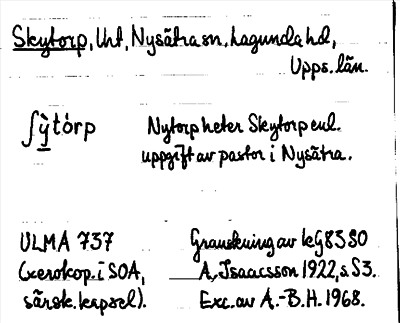 Skytorp, Unt, Nysätra sn, Lagunda hd,
Upps. län.
ʃỳtòrp
Nytorp heter Skytorp enl.
uppgift av pastor i Nysätra.
ULMA 737
(xerokop. i SOA,
särsk. kapsel).
Granskning av
A, Isaacsson 1922, s 53.
Exc. av A.-B.H. 1968.